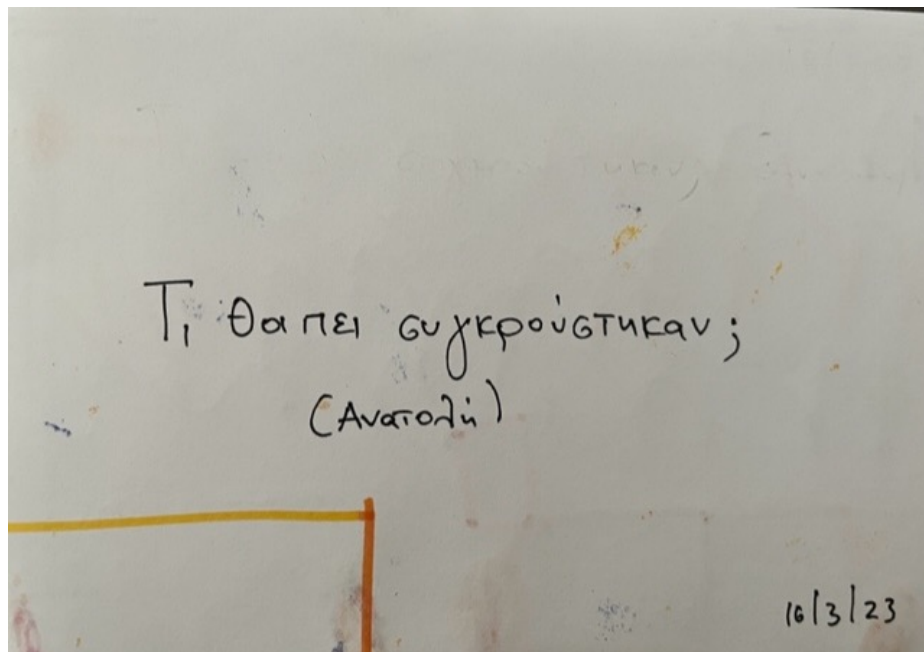 Τι θα πει συγκρούστηκαν;
(Ανατολή)
16/3/23